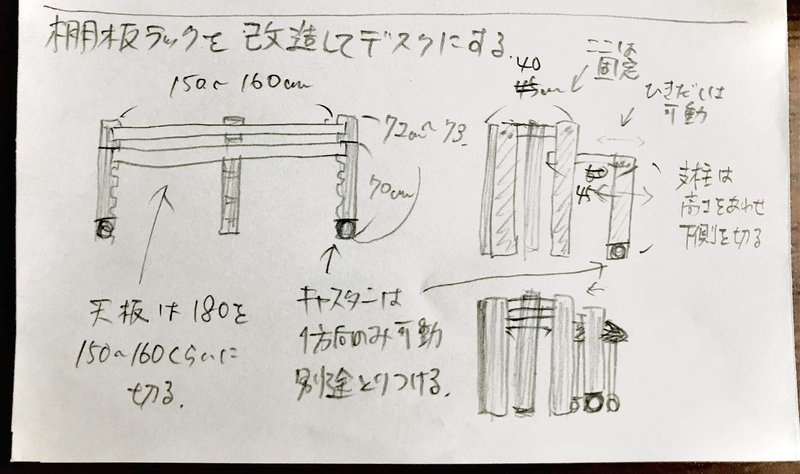 棚板ラックを改造してデスクにする.
150〜160cm
72cm〜73.
70cm
天板は180を
150〜160くらいに
切る.
キャスターは
1方向のみ可動
別途とりつける.
40
45cm
ここは
固定
ひきだしは
可動
60
45
支柱は
高さをあわせ
下側を切る